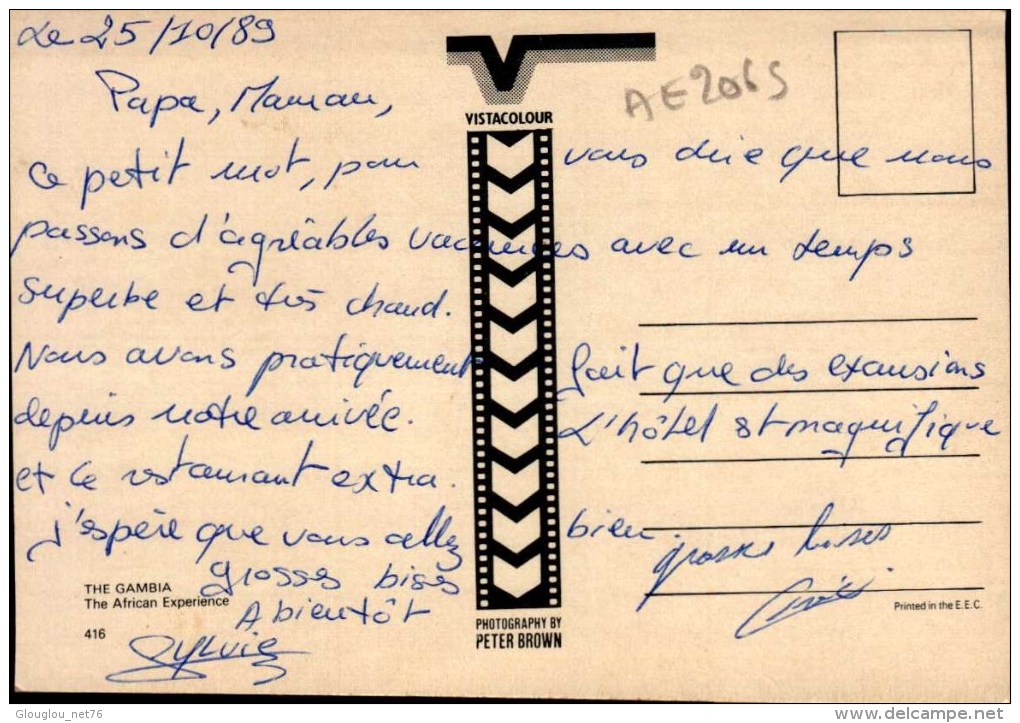 Le 25/10/89
Papa, Maman,
Ce petit mot, pour vous dire que nous
passons d'agréables vacances avec un temps
superbe et très chaud.
Nous avons pratiquement fait que des excursions
depuis notre arrivée. L'hôtel est magnifique
et le restaurant extra.
J'espère que vous allez bien
grosses bises
A bientôt
Sylvie
grosses bises
AE206S
VISTACOLOUR
PHOTOGRAPHY BY
PETER BROWN
THE GAMBIA
The African Experience
416
Printed in the E.E.C.
Glouglou_net76